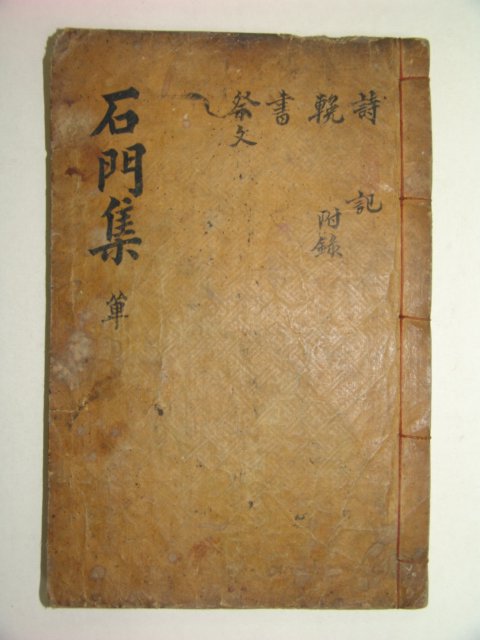 石門集
單
詩
輓
書
祭文
記
附錄